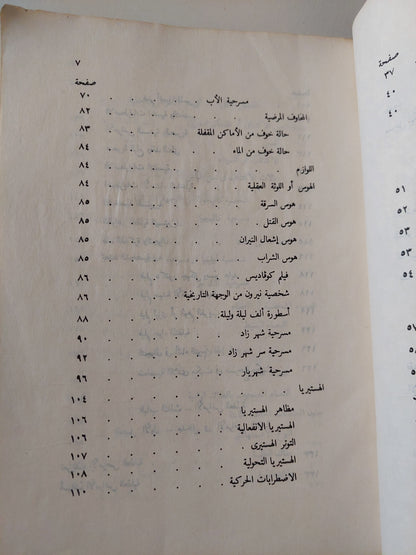 ٧
صفحة
مسرحية الأب . . . . . . ٧٠
المخاوف المرضية . . . . . ٨٢
حالة خوف من الأماكن المقفلة . . . ٨٣
حالة خوف من الماء . . . . ٨٤
اللوازم . . . . . . ٨٤
الهوس أو اللوثة العقلية . . . . ٨٤
هوس السرقة . . . . ٨٥
هوس القتل . . . . ٨٥
هوس إشعال النيران . . . . ٨٥
هوس الشراب . . . . ٨٥
فيلم كوفاديس . . . . ٨٦
شخصية نيرون من الوجهة التاريخية . . ٨٦
أسطورة ألف ليلة وليلة . . . ٨٨
مسرحية شهر زاد . . . . ٩٠
مسرحية سر شهر زاد . . . . ٩٢
مسرحية شهريار . . . . ٩٦
الهستيريا . . . . . . ١٠٤
مظاهر الهستيريا . . . . ١٠٦
الهستيريا الانفعالية . . . . ١٠٦
التوتر الهستيرى . . . . ١٠٧
الهستيريا التحولية . . . . ١٠٨
الاضطرابات الحركية . . . . ١١٠
صفحة
٣٧
٤٠
٤٠
٥١
٥٢
٥٣
٥٣
٥٤